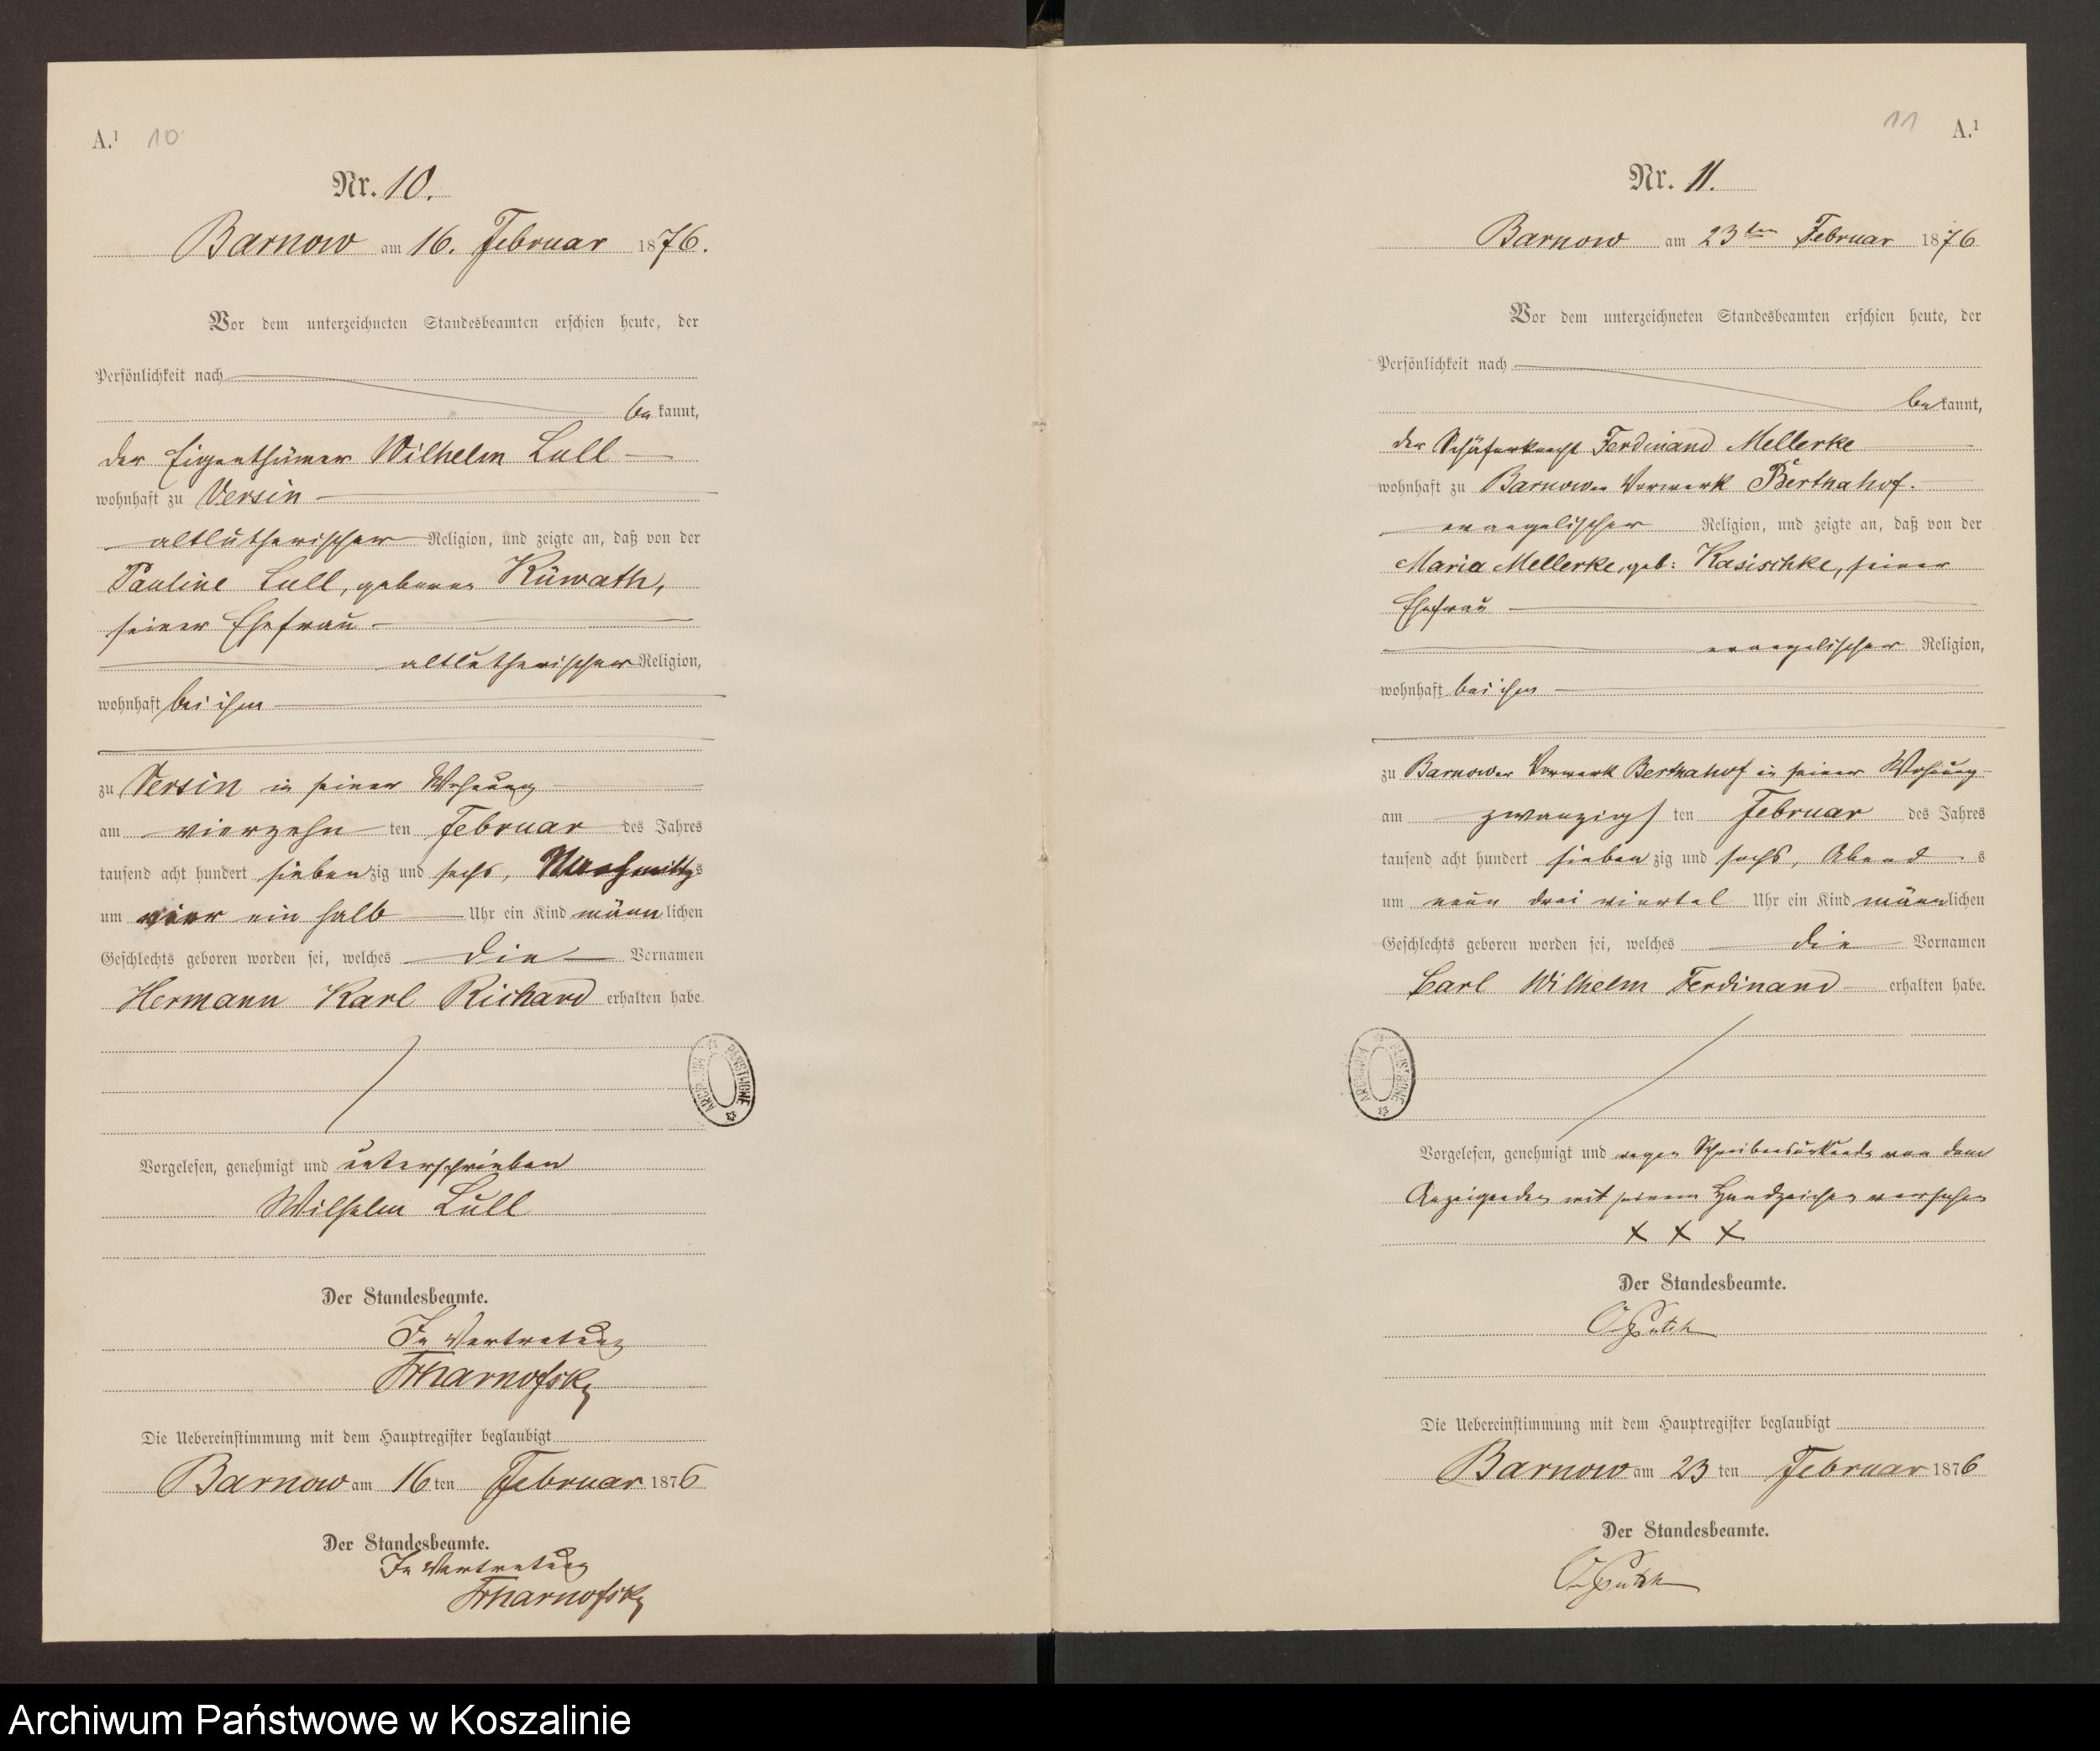 A.¹ 10
Nr. 10.
Barnow am 16. Februar 1876.
Vor dem unterzeichneten Standesbeamten erschien heute, der
Persönlichkeit nach
be kannt,
der Eigenthümer Wilhelm Lull
wohnhaft zu Versin
altlutherischer Religion, und zeigte an, daß von der
Pauline Lull, geborene Küwath,
seiner Ehefrau
altlutherischer Religion,
wohnhaft bei ihm
zu Versin in seiner Wohnung
am vierzehn ten Februar des Jahres
tausend acht hundert sieben zig und sechs, Nachmittags
um vier ein halb Uhr ein Kind männ lichen
Geschlechts geboren worden sei, welches die Vornamen
Hermann Karl Richard erhalten habe.
ARCHIWUM PAŃSTWOWE
Vorgelesen, genehmigt und unterschrieben
Wilhelm Lull
Der Standesbeamte.
In Vertretung
Die Uebereinstimmung mit dem Hauptregister beglaubigt
Barnow am 16 ten Februar 1876
Der Standesbeamte.
In Vertretung
11 A.¹
Nr. 11.
Barnow am 23ten Februar 1876
Vor dem unterzeichneten Standesbeamten erschien heute, der
Persönlichkeit nach
be kannt,
der Schäferknecht Ferdinand Mellerke
wohnhaft zu Barnower Vorwerk Berthahof.
evangelischer Religion, und zeigte an, daß von der
Maria Mellerke, geb: Kasischke, seiner
Ehefrau
evangelischer Religion,
wohnhaft bei ihm
zu Barnower Vorwerk Berthahof in seiner Wohnung
am zwanzigs ten Februar des Jahres
tausend acht hundert sieben zig und sechs, Abend s
um neun drei viertel Uhr ein Kind männ lichen
Geschlechts geboren worden sei, welches die Vornamen
Carl Wilhelm Ferdinand erhalten habe.
ARCHIWUM PAŃSTWOWE
Vorgelesen, genehmigt und wegen Schreibensunkunde von dem
Anzeigenden mit seinem Handzeichen versehen
x x x
Der Standesbeamte.
Die Uebereinstimmung mit dem Hauptregister beglaubigt
Barnow am 23 ten Februar 1876
Der Standesbeamte.
Archiwum Państwowe w Koszalinie